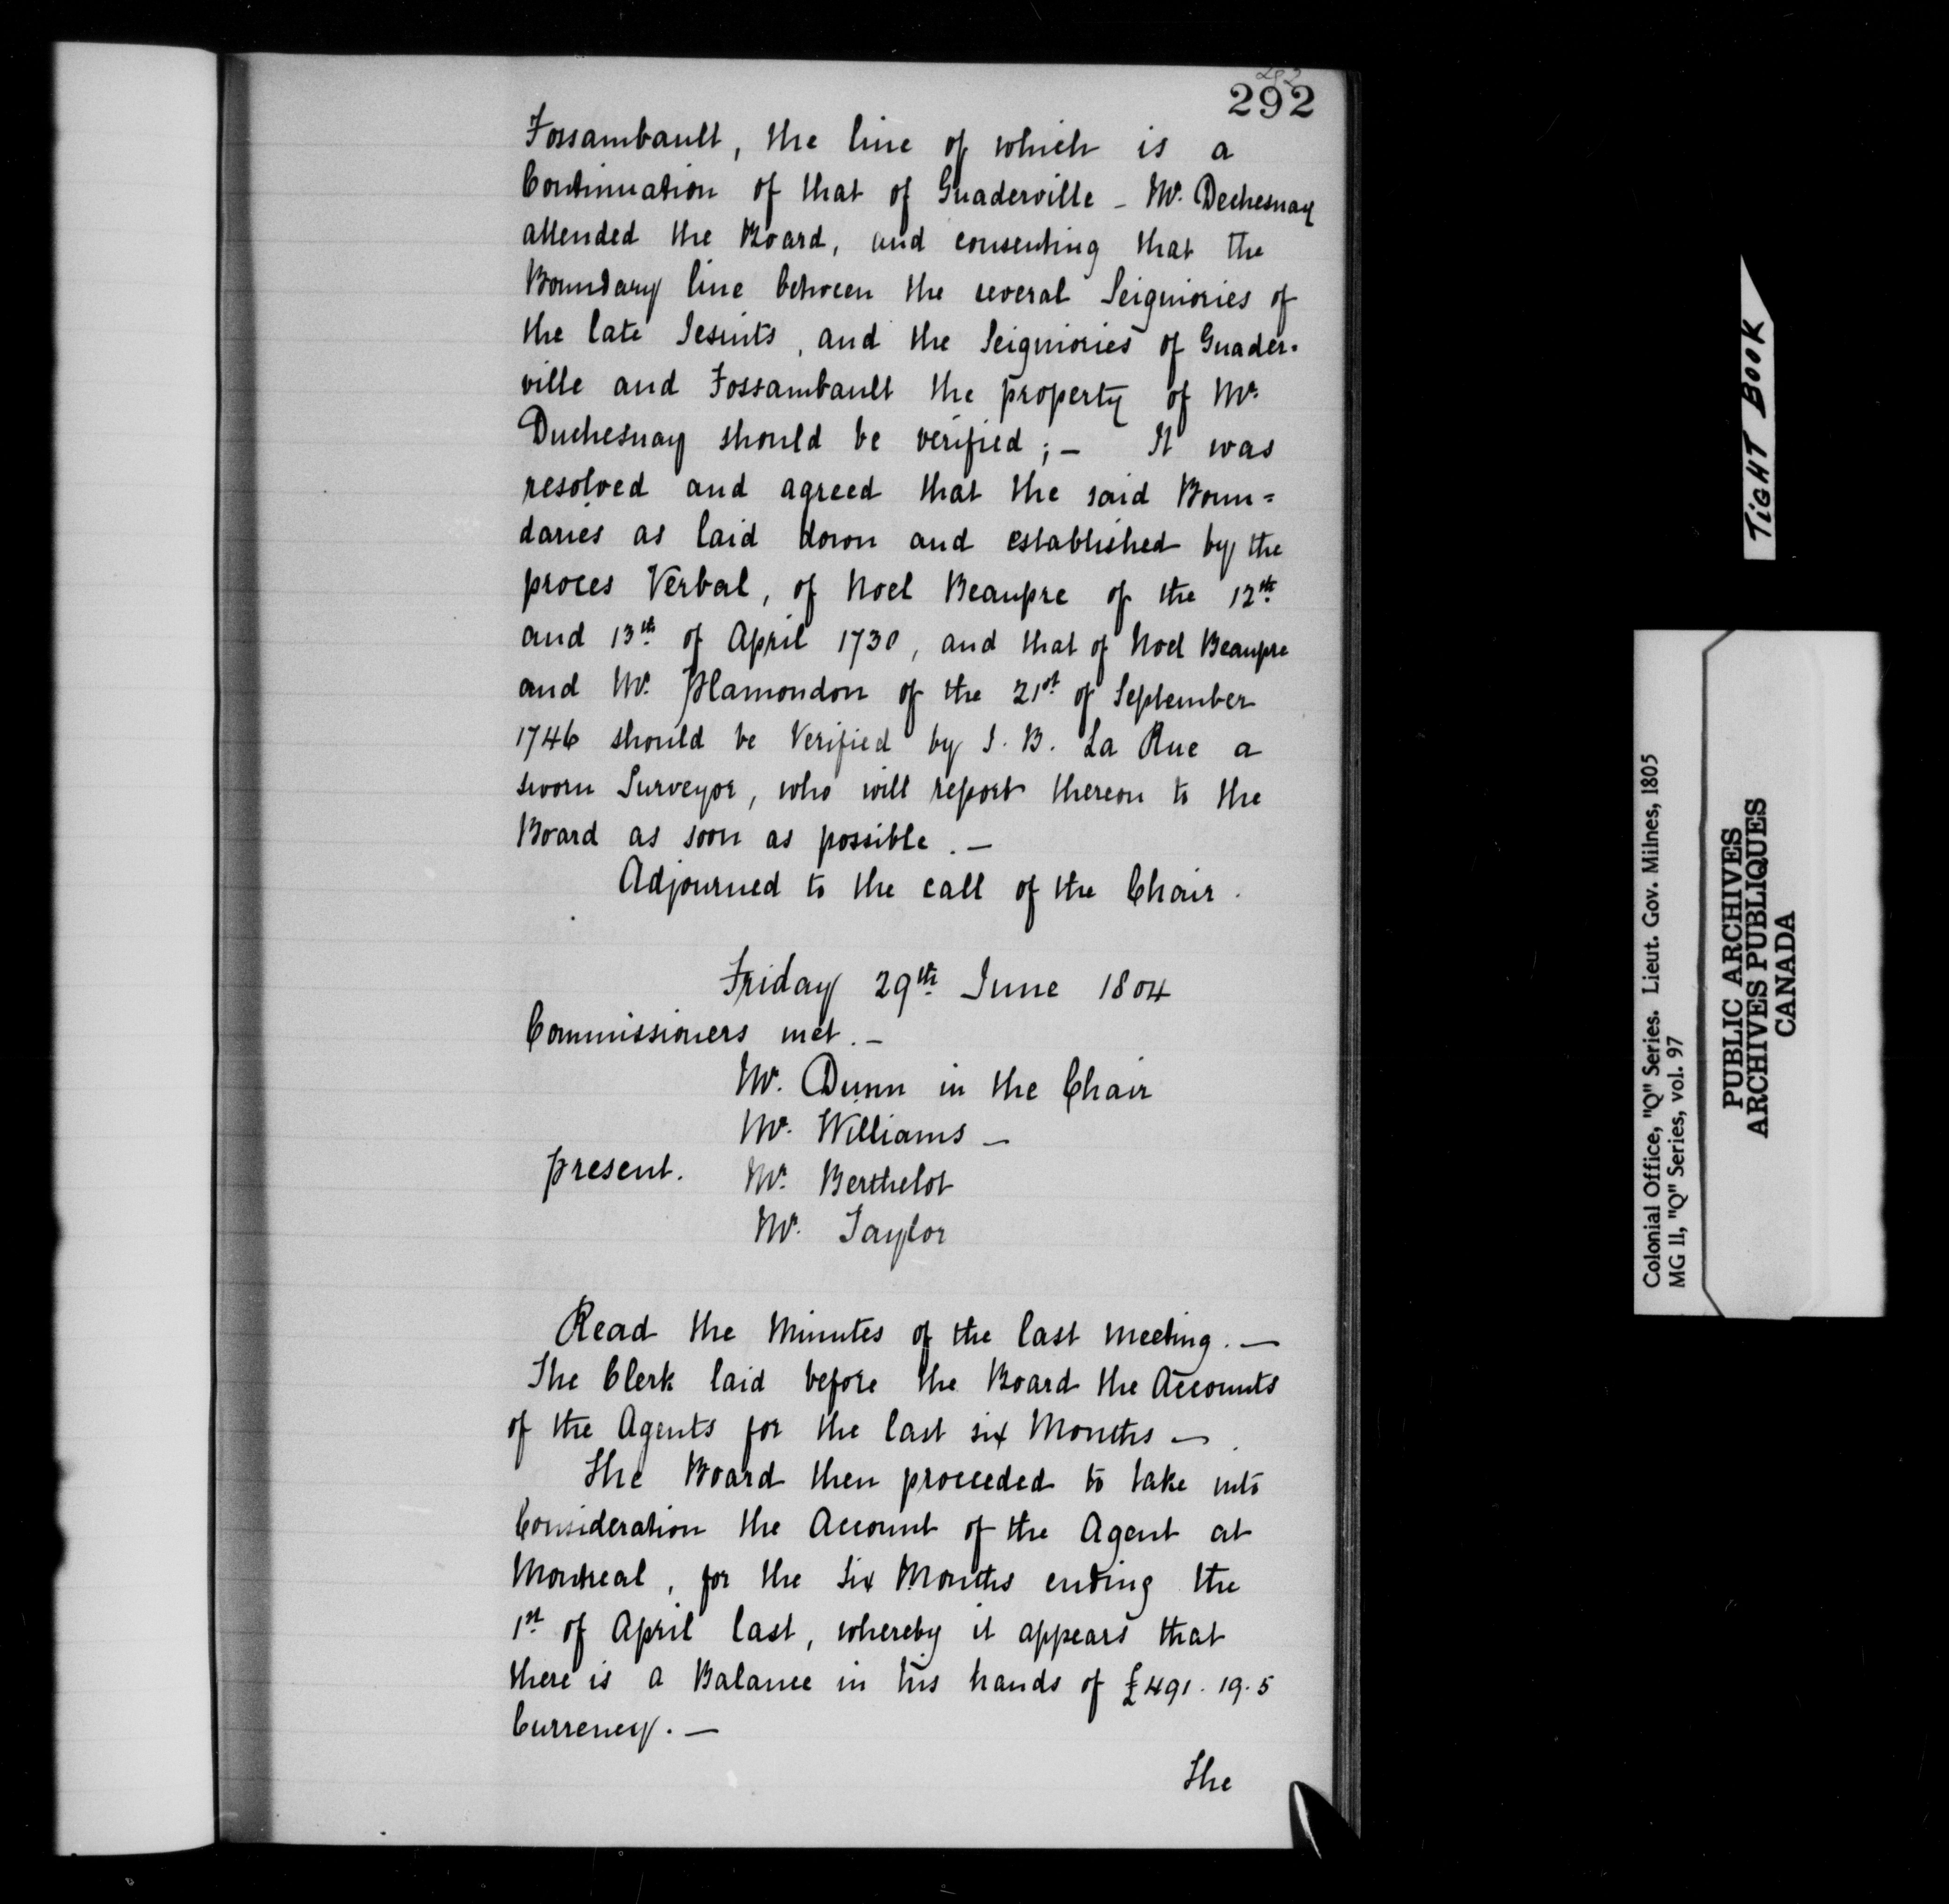 292
292
Fossambault, the line of which is a
Continuation of that of Guaderville - Mr. Dechesnay
attended the Board, and consenting that the
Boundary line between the several Seigniories of
the late Jesuits, and the Seigniories of Guader-
ville and Fossambault the property of Mr.
Duchesnay should be verified; - It was
resolved and agreed that the said Boun=
daries as laid down and established by the
proces Verbal, of Noel Beaupre of the 12th
and 13th of April 1730, and that of Noel Beaupre
and Mr. Plamondon of the 21st of September
1746 should be Verified by J. B. La Rue a
sworn Surveyor, who will report thereon to the
Board as soon as possible. -
Adjourned to the call of the Chair.
Friday 29th June 1804
Commissioners met. -
Mr. Dunn in the Chair
Mr. Williams -
present. Mr. Berthelot
Mr. Taylor
Read the Minutes of the last meeting. -
The Clerk laid before the Board the Accounts
of the Agents for the last six Months -
The Board then proceeded to take into
Consideration the Account of the Agent at
Montreal, for the Six Months ending the
1st of April last, whereby it appears that
there is a Balance in his hands of £491.19.5
Currency. -
The
TIGHT BOOK
Colonial Office, "Q" Series. Lieut. Gov. Milnes, 1805
MG 11, "Q" Series, vol. 97
PUBLIC ARCHIVES
ARCHIVES PUBLIQUES
CANADA